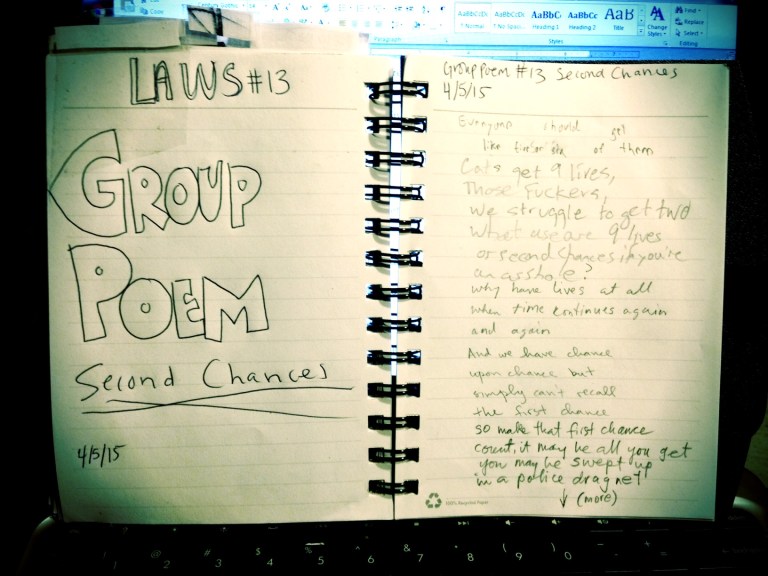 AaBbCcDc
AaBbCcDc
AaBbC
AaBbCc
AaB
Normal
No Spaci...
Heading 1
Heading 2
Title
Change
Styles
Styles
Find
Replace
Select
Editing
Paragraph
LAWS #13
GROUP
POEM
Second Chances
4/5/15
Group Poem #13 Second Chances
4/5/15
Everyone should get
like of them
Cats get 9 lives,
Those Fuckers,
We struggle to get two
What use are 9 lives
or second chances if you're
an asshole?
why have lives at all
when time continues again
and again
And we have chance
upon chance but
simply can't recall
the first chance
so make that first chance
count, it may be all you get
you may be swept up
in a police dragnet
↓ (more)
100% Recycled Paper